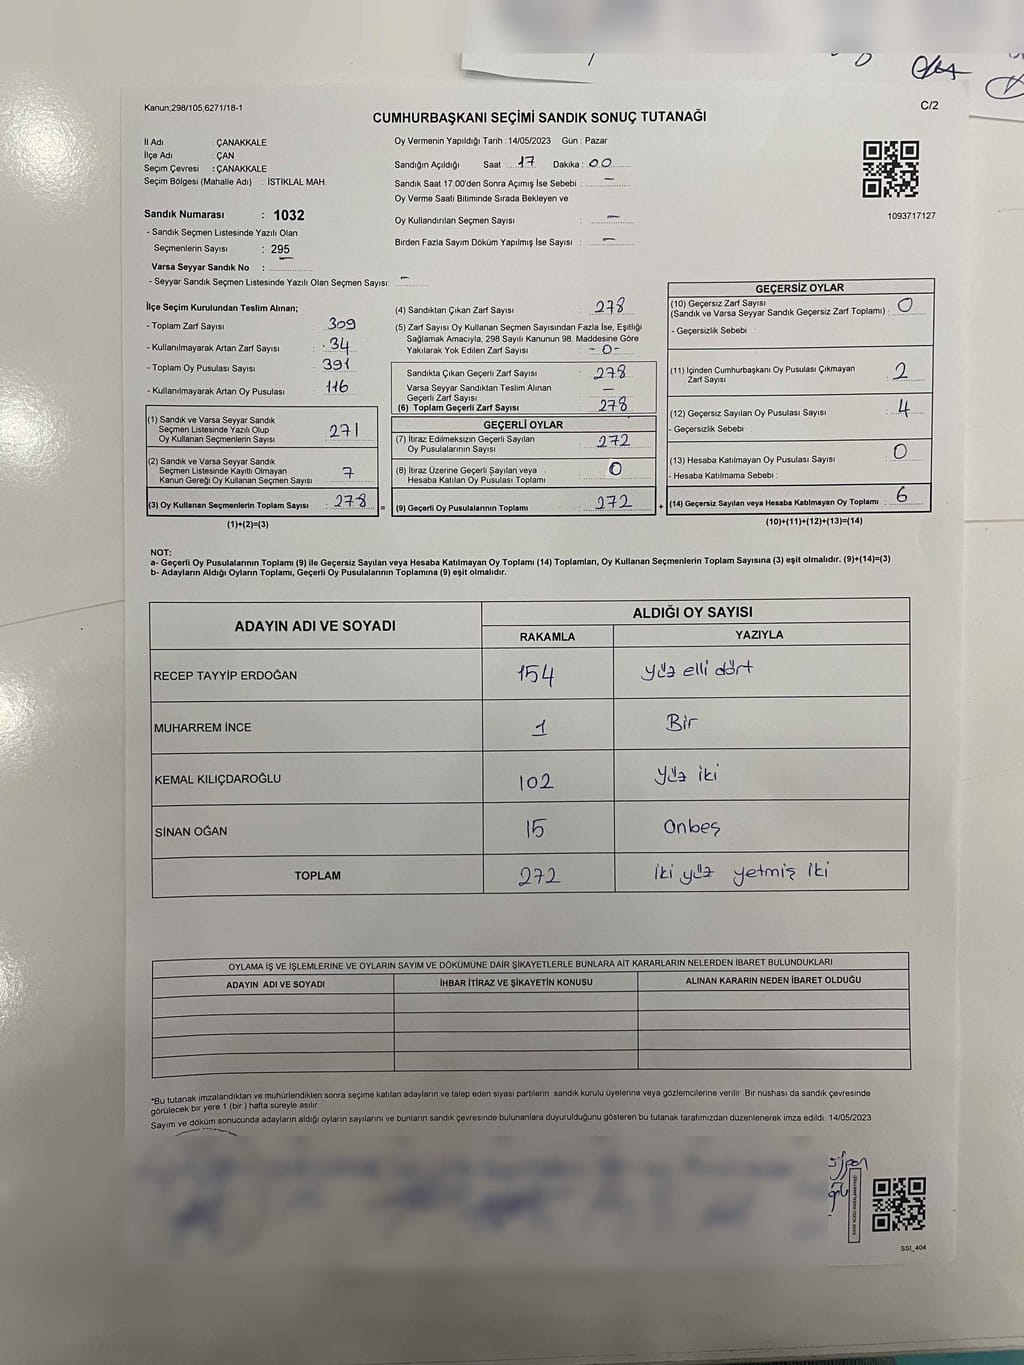 Kanun;298/105,6271/18-1
C/2
CUMHURBAŞKANI SEÇİMİ SANDIK SONUÇ TUTANAĞI
İl Adı : ÇANAKKALE
İlçe Adı : ÇAN
Seçim Çevresi : ÇANAKKALE
Seçim Bölgesi (Mahalle Adı) : İSTİKLAL MAH.
Sandık Numarası : 1032
- Sandık Seçmen Listesinde Yazılı Olan
Seçmenlerin Sayısı : 295
Varsa Seyyar Sandık No :
- Seyyar Sandık Seçmen Listesinde Yazılı Olan Seçmen Sayısı: –
Oy Vermenin Yapıldığı Tarih : 14/05/2023 Gün : Pazar
Sandığın Açıldığı Saat : 17 Dakika : 00
Sandık Saat 17.00'den Sonra Açımış İse Sebebi : –
Oy Verme Saati Bitiminde Sırada Bekleyen ve
Oy Kullandırılan Seçmen Sayısı : –
Birden Fazla Sayım Döküm Yapılmış İse Sayısı : –
1093717127
İlçe Seçim Kurulundan Teslim Alınan;
- Toplam Zarf Sayısı : 309
- Kullanılmayarak Artan Zarf Sayısı : 34
- Toplam Oy Pusulası Sayısı : 391
- Kullanılmayarak Artan Oy Pusulası : 116
(1) Sandık ve Varsa Seyyar Sandık
Seçmen Listesinde Yazılı Olup
Oy Kullanan Seçmenlerin Sayısı : 271
(2) Sandık ve Varsa Seyyar Sandık
Seçmen Listesinde Kayıtlı Olmayan
Kanun Gereği Oy Kullanan Seçmen Sayısı : 7
(3) Oy Kullanan Seçmenlerin Toplam Sayısı : 278
(1)+(2)=(3)
(4) Sandıktan Çıkan Zarf Sayısı : 278
(5) Zarf Sayısı Oy Kullanan Seçmen Sayısından Fazla İse, Eşitliği
Sağlamak Amacıyla, 298 Sayılı Kanunun 98. Maddesine Göre
Yakılarak Yok Edilen Zarf Sayısı : -0-
Sandıkta Çıkan Geçerli Zarf Sayısı : 278
Varsa Seyyar Sandıktan Teslim Alınan
Geçerli Zarf Sayısı : –
(6) Toplam Geçerli Zarf Sayısı : 278
GEÇERLİ OYLAR
(7) İtiraz Edilmeksizin Geçerli Sayılan
Oy Pusulalarının Sayısı : 272
(8) İtiraz Üzerine Geçerli Sayılan veya
Hesaba Katılan Oy Pusulası Toplamı : 0
= (9) Geçerli Oy Pusulalarının Toplamı : 272
GEÇERSİZ OYLAR
(10) Geçersiz Zarf Sayısı
(Sandık ve Varsa Seyyar Sandık Geçersiz Zarf Toplamı) : 0
- Geçersizlik Sebebi :
(11) İçinden Cumhurbaşkanı Oy Pusulası Çıkmayan
Zarf Sayısı : 2
(12) Geçersiz Sayılan Oy Pusulası Sayısı : 4
- Geçersizlik Sebebi :
(13) Hesaba Katılmayan Oy Pusulası Sayısı : 0
- Hesaba Katılmama Sebebi :
+ (14) Geçersiz Sayılan veya Hesaba Katılmayan Oy Toplamı : 6
(10)+(11)+(12)+(13)=(14)
NOT:
a- Geçerli Oy Pusulalarının Toplamı (9) ile Geçersiz Sayılan veya Hesaba Katılmayan Oy Toplamı (14) Toplamları, Oy Kullanan Seçmenlerin Toplam Sayısına (3) eşit olmalıdır. (9)+(14)=(3)
b- Adayların Aldığı Oyların Toplamı, Geçerli Oy Pusulalarının Toplamına (9) eşit olmalıdır.
ADAYIN ADI VE SOYADI ALDIĞI OY SAYISI
RAKAMLA YAZIYLA
RECEP TAYYİP ERDOĞAN 154 Yüz elli dört
MUHARREM İNCE 1 Bir
KEMAL KILIÇDAROĞLU 102 Yüz iki
SİNAN OĞAN 15 Onbeş
TOPLAM 272 İki yüz yetmiş iki
OYLAMA İŞ VE İŞLEMLERİNE VE OYLARIN SAYIM VE DÖKÜMÜNE DAİR ŞİKAYETLERLE BUNLARA AİT KARARLARIN NELERDEN İBARET BULUNDUKLARI
ADAYIN ADI VE SOYADI İHBAR İTİRAZ VE ŞİKAYETİN KONUSU ALINAN KARARIN NEDEN İBARET OLDUĞU
*Bu tutanak imzalandıktan ve mühürlendikten sonra seçime katılan adayların ve talep eden siyasi partilerin sandık kurulu üyelerine veya gözlemcilerine verilir. Bir nüshası da sandık çevresinde
görülecek bir yere 1 (bir) hafta süreyle asılır.
Sayım ve döküm sonucunda adayların aldığı oyların sayılarını ve bunların sandık çevresinde bulunanlara duyurulduğunu gösteren bu tutanak tarafımızdan düzenlenerek imza edildi. 14/05/2023
SSI_404